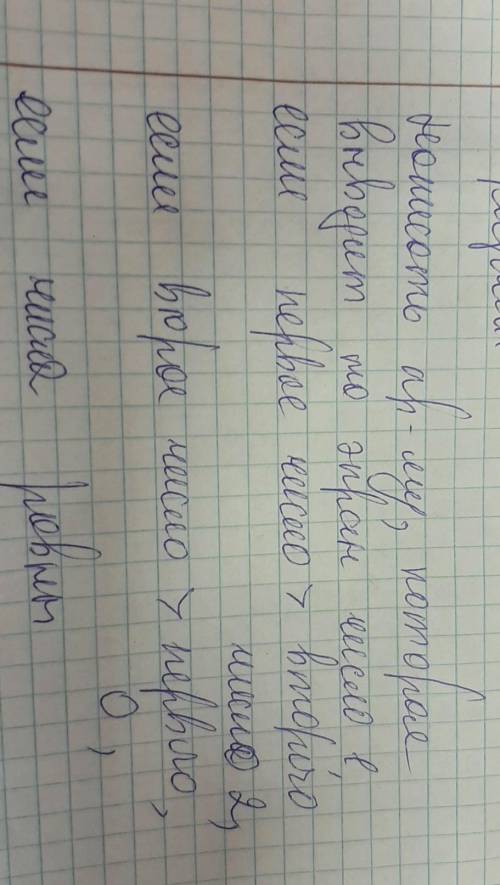 написать пр-му, которая
выводит на экран число 1
если первое число > второго
число 2,
если второе число > первого,
0,
если числа равны